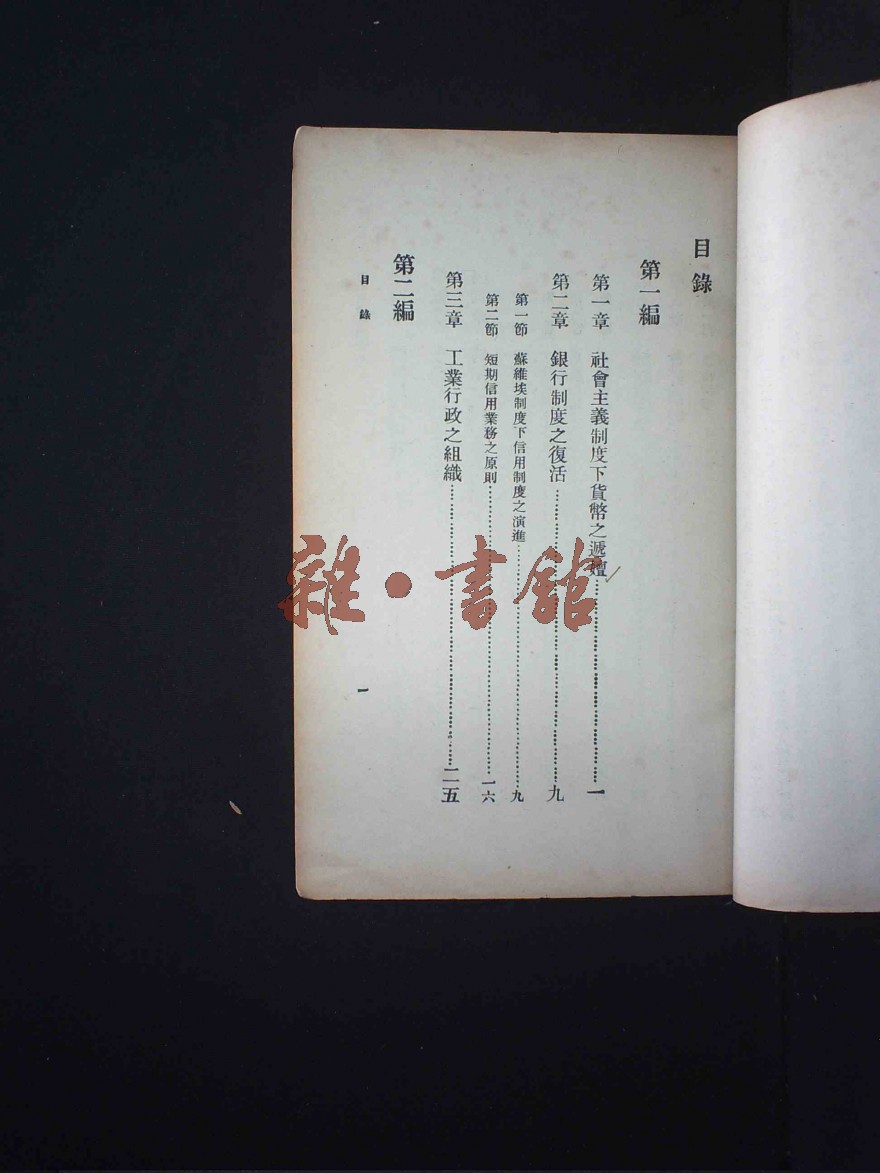 目錄
第一編
第一章 社會主義制度下貨幣之遞嬗……一
第二章 銀行制度之復活……九
第一節 蘇維埃制度下信用制度之演進……九
第二節 短期信用業務之原則……一六
第三章 工業行政之組織……二五
第二編
目錄 一
雜·書館